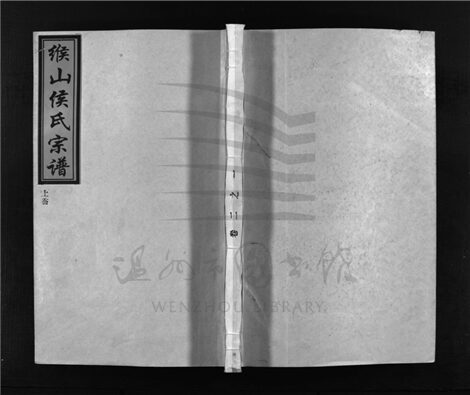 缑山侯氏宗谱
上畲
卷二之一
温州市图书馆
WENZHOU LIBRARY